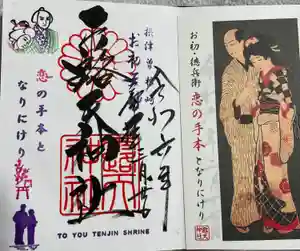 令和六年
摂津曽根崎
お初天神
露天神社
恋の手本と
なりにけり
TO YOU TENJIN SHRINE
お初・徳兵衛 恋の手本となりにけり